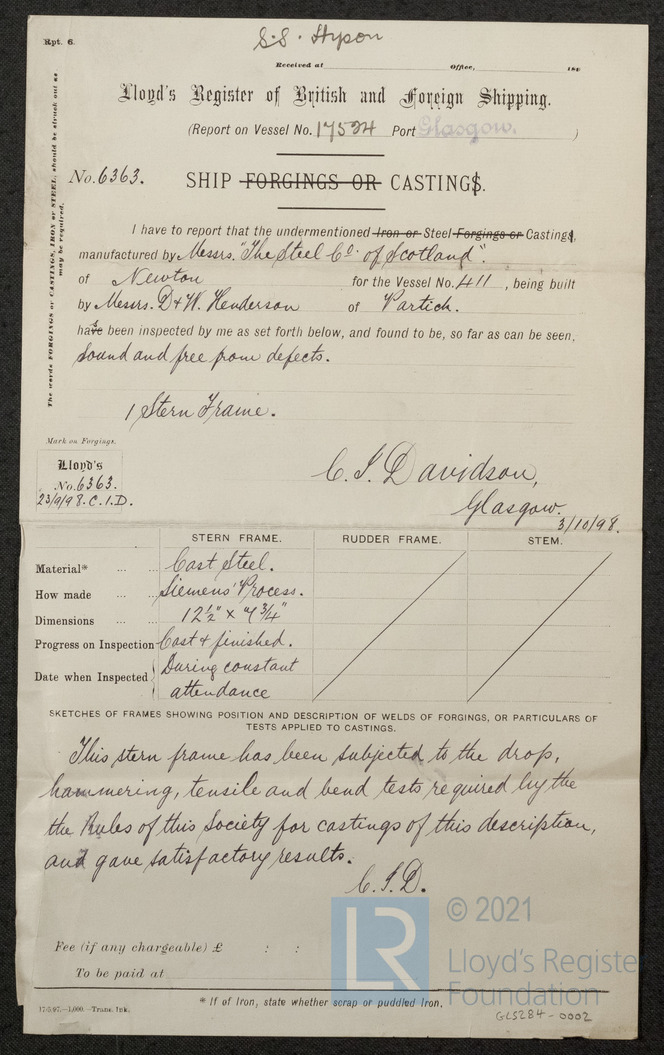 Rpt. 6.
S.S. Hyson
Received at Office, 189
Lloyd's Register of British and Foreign Shipping.
(Report on Vessel No. 17524 Port Glasgow.)
No. 6363.
SHIP FORGINGS OR CASTINGS.
The words FORGINGS or CASTINGS, IRON or STEEL, should be struck out as
may be required.
I have to report that the undermentioned Iron or Steel Forgings or Castings,
manufactured by Messrs. "The Steel Co. of Scotland".
of Newton for the Vessel No. 411, being built
by Messrs. D & W. Henderson of Partick.
has been inspected by me as set forth below, and found to be, so far as can be seen,
sound and free from defects.
1 Stern Frame.
Mark on Forgings.
Lloyd's
No. 6363.
23/9/98. C.I.D.
C. I. Davidson,
Glasgow.
3/10/98.
STERN FRAME. RUDDER FRAME. STEM.
Material* ... ... Cast Steel.
How made ... ... Siemens' Process.
Dimensions ... ... 12½" × 7¾"
Progress on Inspection Cast & finished.
Date when Inspected During constant
attendance
SKETCHES OF FRAMES SHOWING POSITION AND DESCRIPTION OF WELDS OF FORGINGS, OR PARTICULARS OF
TESTS APPLIED TO CASTINGS.
This stern frame has been subjected to the drop,
hammering, tensile and bend tests required by the
the Rules of this Society for castings of this description,
and gave satisfactory results.
C.I.D.
Fee (if any chargeable) £ : :
To be paid at
* If of Iron, state whether scrap or puddled Iron.
17/5/97.—1,000.—Trans. Ink.
GLS284-0002
LR
© 2021
Lloyd's Register
Foundation